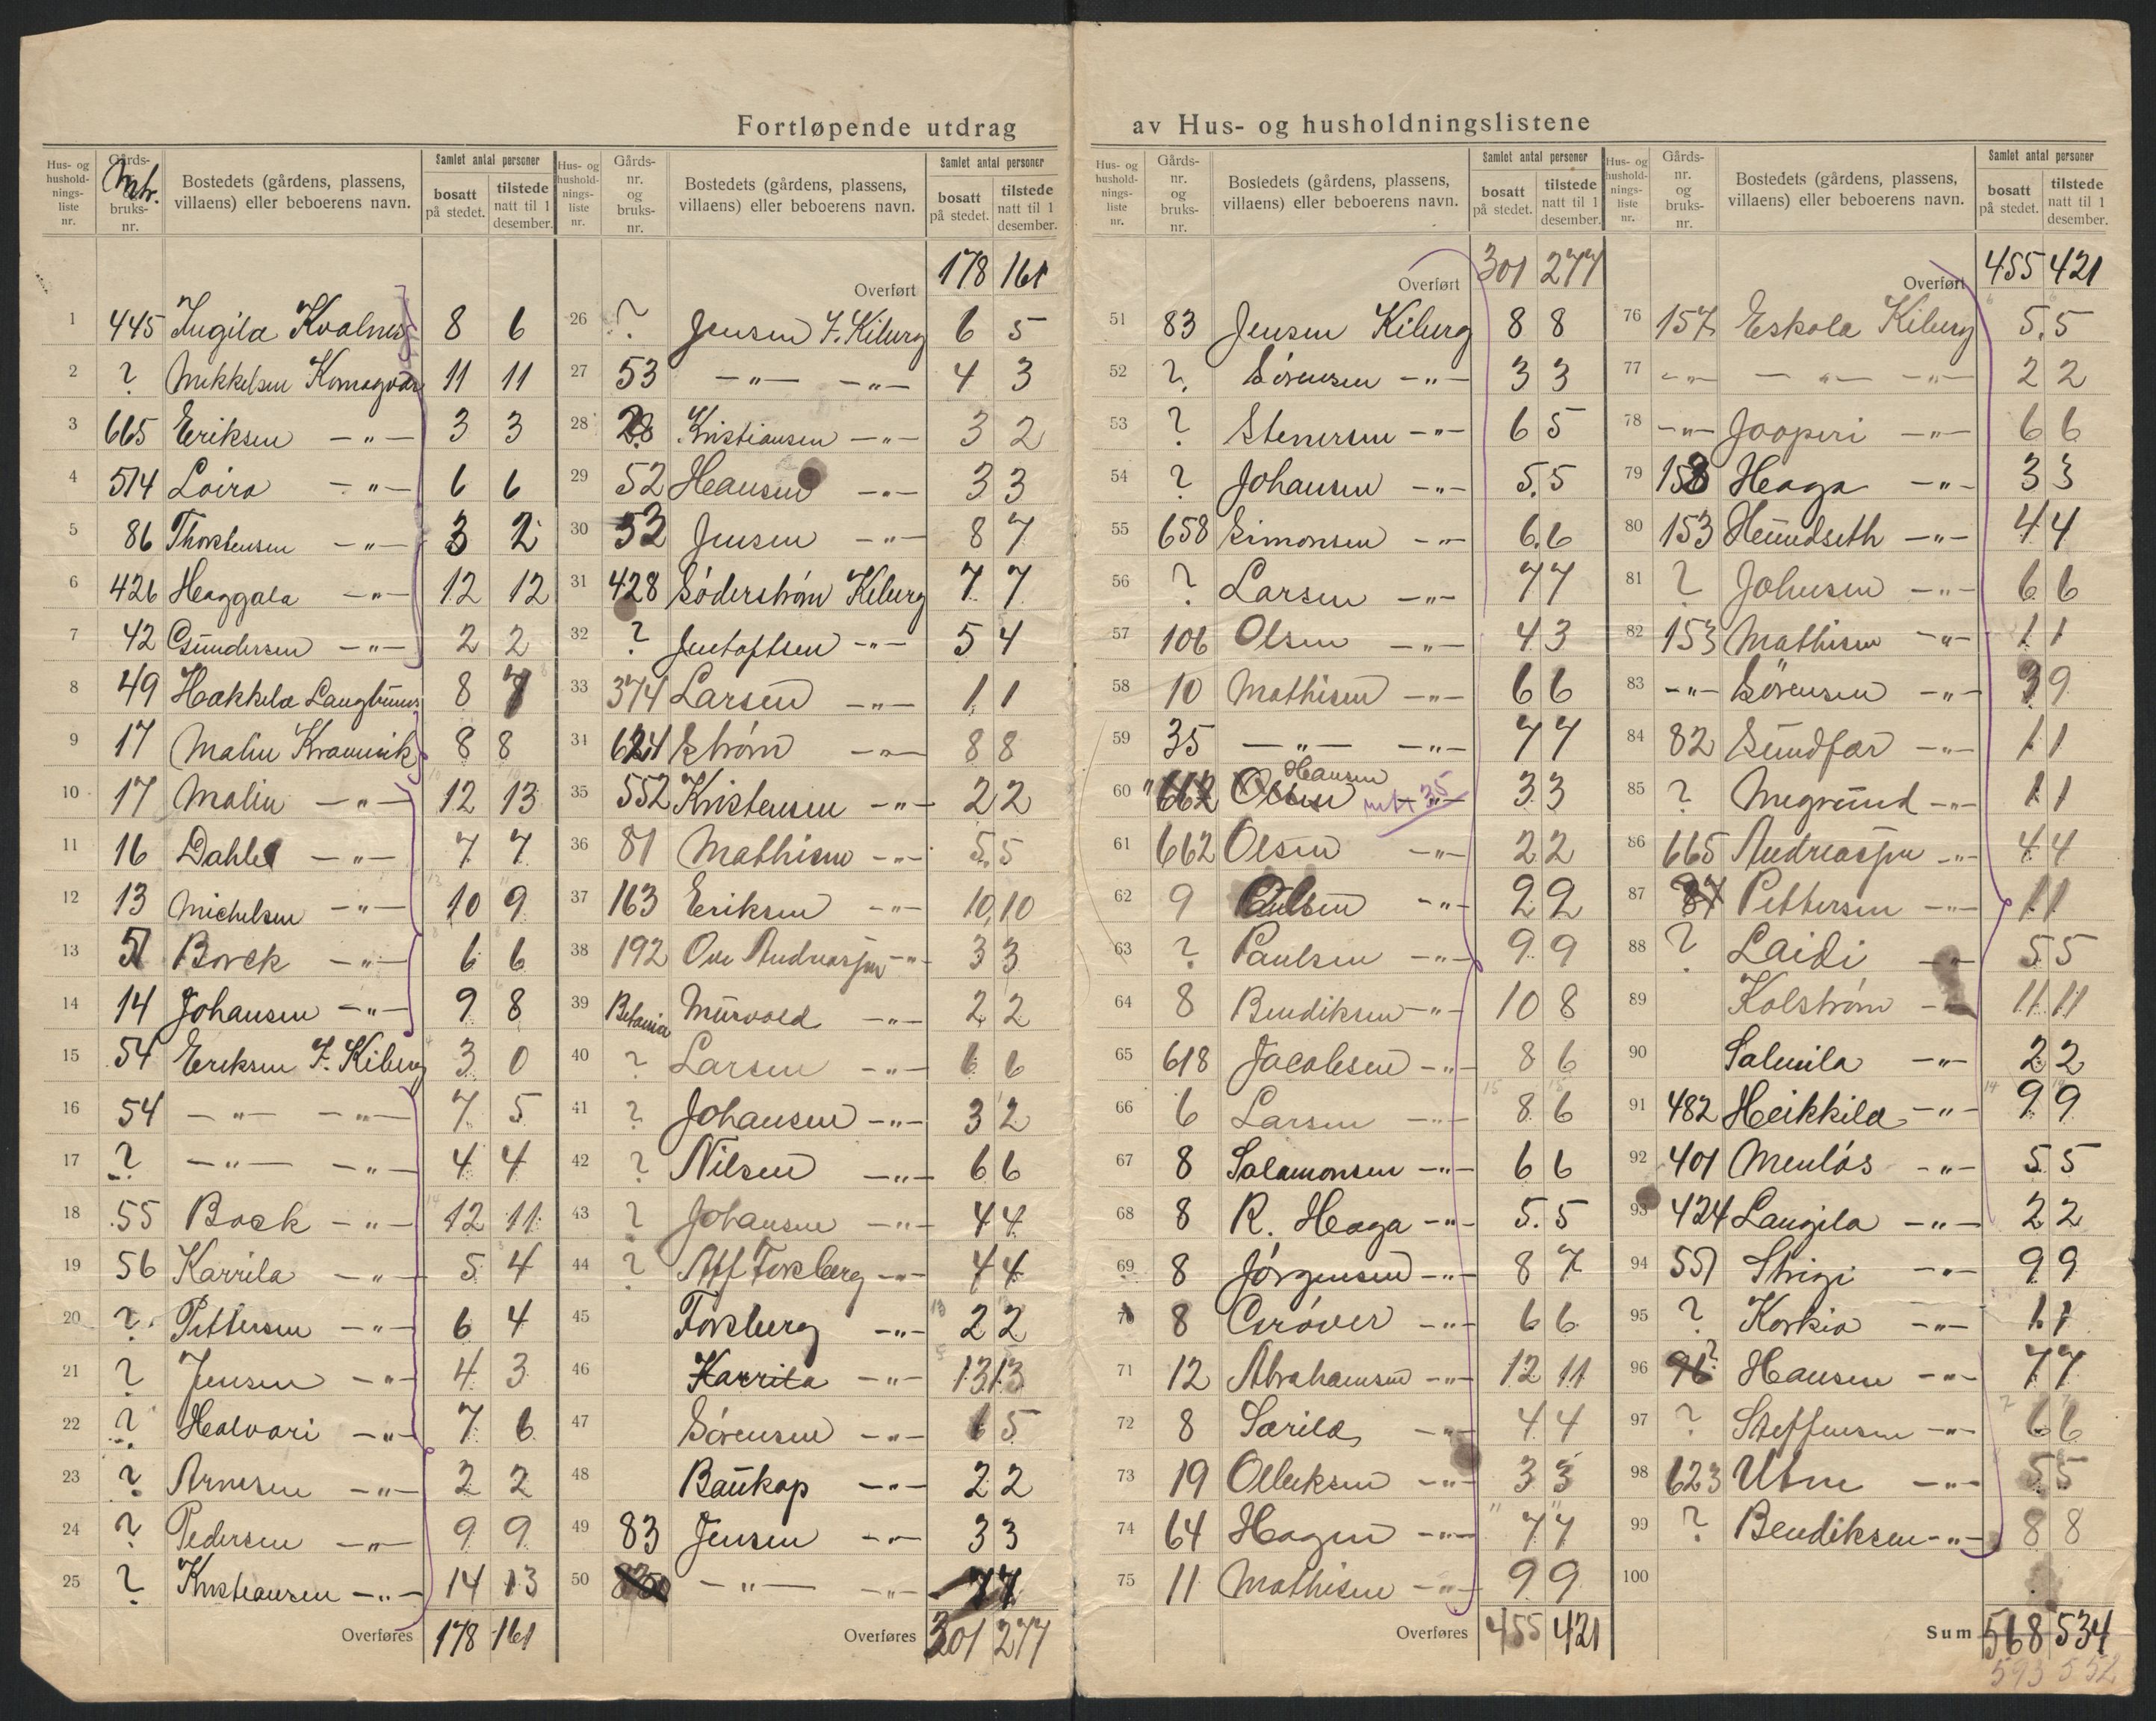 Fortløpende utdrag av Hus- og husholdningslistene
Hus- og husholdningsliste nr. | Gårds- Mtr. bruks-nr. | Bostedets (gårdens, plassens, villaens) eller beboerens navn. | Samlet antal personer bosatt på stedet. | tilstede natt til 1 desember.
1 445 Ingila Kvalnes 8 6
2 ? Mikkelsen Komagvær 11 11
3 665 Eriksen —"— 3 3
4 514 Loira —"— 6 6
5 86 Thorstensen —"— 3 2
6 426 Haggala —"— 12 12
7 42 Gundersen —"— 2 2
8 49 Hakkila Langbunes 8 7
9 17 Malin Kramvik 8 8
10 17 Malin —"— 12 13
11 16 Dahle —"— 7 7
12 13 Michelsen —"— 10 9
13 51 Borck —"— 6 6
14 14 Johansen —"— 9 8
15 54 Eriksen I. Kiberg 3 0
16 54 —"— —"— 7 5
17 ? —"— —"— 4 4
18 55 Bock —"— 12 11
19 56 Karrila —"— 5 4
20 ? Pettersen —"— 6 4
21 ? Jensen —"— 4 3
22 ? Halvari —"— 7 6
23 ? Arnesen —"— 2 2
24 ? Pedersen —"— 9 9
25 ? Kristiansen —"— 14 13
Overføres 178 161
Hus- og husholdningsliste nr. | Gårds-nr. og bruks-nr. | Bostedets (gårdens, plassens, villaens) eller beboerens navn. | Samlet antal personer bosatt på stedet. | tilstede natt til 1 desember.
Overført 178 161
26 ? Jensen I. Kiberg 6 5
27 53 —"— —"— 4 3
28 Kristiansen —"— 3 2
29 52 Hansen —"— 3 3
30 52 Jensen —"— 8 7
31 428 Söderstrøm Kiberg 7 7
32 ? Jentoftsen —"— 5 4
33 374 Larsen —"— 1 1
34 624 Strøm —"— 8 8
35 552 Kristensen —"— 2 2
36 81 Mathisen —"— 5 5
37 163 Eriksen —"— 10 10
38 192 Ove Andreassen —"— 3 3
39 Betania Murvold —"— 2 2
40 ? Larsen —"— 6 6
41 ? Johansen —"— 3 2
42 ? Nilsen —"— 6 6
43 ? Johansen —"— 4 4
44 ? Alf Forsberg —"— 4 4
45 Forsberg —"— 2 2
46 Karrila —"— 13 13
47 Sörensen —"— 6 5
48 Baukop —"— 2 2
49 83 Jensen —"— 3 3
50 —"— —"— 7 7
Overføres 301 277
Hus- og husholdningsliste nr. | Gårds-nr. og bruks-nr. | Bostedets (gårdens, plassens, villaens) eller beboerens navn. | Samlet antal personer bosatt på stedet. | tilstede natt til 1 desember.
Overført 301 277
51 83 Jensen Kiberg 8 8
52 ? Sörensen —"— 3 3
53 ? Stenersen —"— 6 5
54 ? Johansen —"— 5 5
55 658 Simonsen —"— 6 6
56 ? Larsen —"— 7 7
57 106 Olsen —"— 4 3
58 10 Mathisen —"— 6 6
59 35 —"— —"— 7 7
60 662 Olsen Hansen —"— mtr 35 3 3
61 662 Olsen —"— 2 2
62 9 —"— 2 2
63 ? Paulsen —"— 9 9
64 8 Bendiksen —"— 10 8
65 618 Jacobsen —"— 8 6
66 6 Larsen —"— 8 6
67 8 Salamonsen —"— 6 6
68 8 R. Haga —"— 5 5
69 8 Jörgensen —"— 8 7
70 8 Cröver —"— 6 6
71 12 Abrahamsen —"— 12 11
72 8 Sarila —"— 4 4
73 19 Olleksen —"— 3 3
74 64 Hagen —"— 7 7
75 11 Mathisen —"— 9 9
Overføres 455 421
Hus- og husholdningsliste nr. | Gårds-nr. og bruks-nr. | Bostedets (gårdens, plassens, villaens) eller beboerens navn. | Samlet antal personer bosatt på stedet. | tilstede natt til 1 desember.
Overført 455 421
76 157 Eskola Kiberg 5 5
77 —"— —"— —"— 2 2
78 —"— Jooperi —"— 6 6
79 158 Haaga —"— 3 3
80 153 Heundseth —"— 4 4
81 ? Johnsen —"— 6 6
82 153 Mathisen —"— 1 1
83 —"— Sörensen —"— 9 9
84 82 Sundfær —"— 1 1
85 ? Megrund —"— 1 1
86 665 Andreassen —"— 4 4
87 Pettersen —"— 1 1
88 ? Laidi —"— 5 5
89 Kolström —"— 11 11
90 Salmila —"— 2 2
91 482 Heikkila —"— 9 9
92 401 Menlös —"— 5 5
93 424 Laugila —"— 2 2
94 551 Strigi —"— 9 9
95 ? Korkia —"— 1 1
96 ? Hansen —"— 7 7
97 ? Steffensen —"— 6 6
98 623 Utne —"— 5 5
99 ? Bendiksen —"— 8 8
100
Sum 568 534
593 552